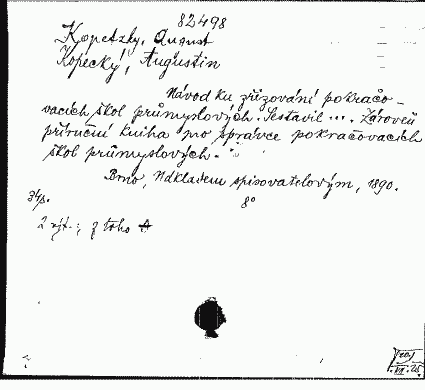 82498
Kopetzky, August
Kopecký, Augustin
Návod ku zřizování pokračo-
vacích škol průmyslových. Sestavil ... Zároveň
příruční kniha pro správce pokračovacích
škol průmyslových.
Brno, Nákladem spisovatelovým, 1890.
34 s.
8°
2 výt.; z toho